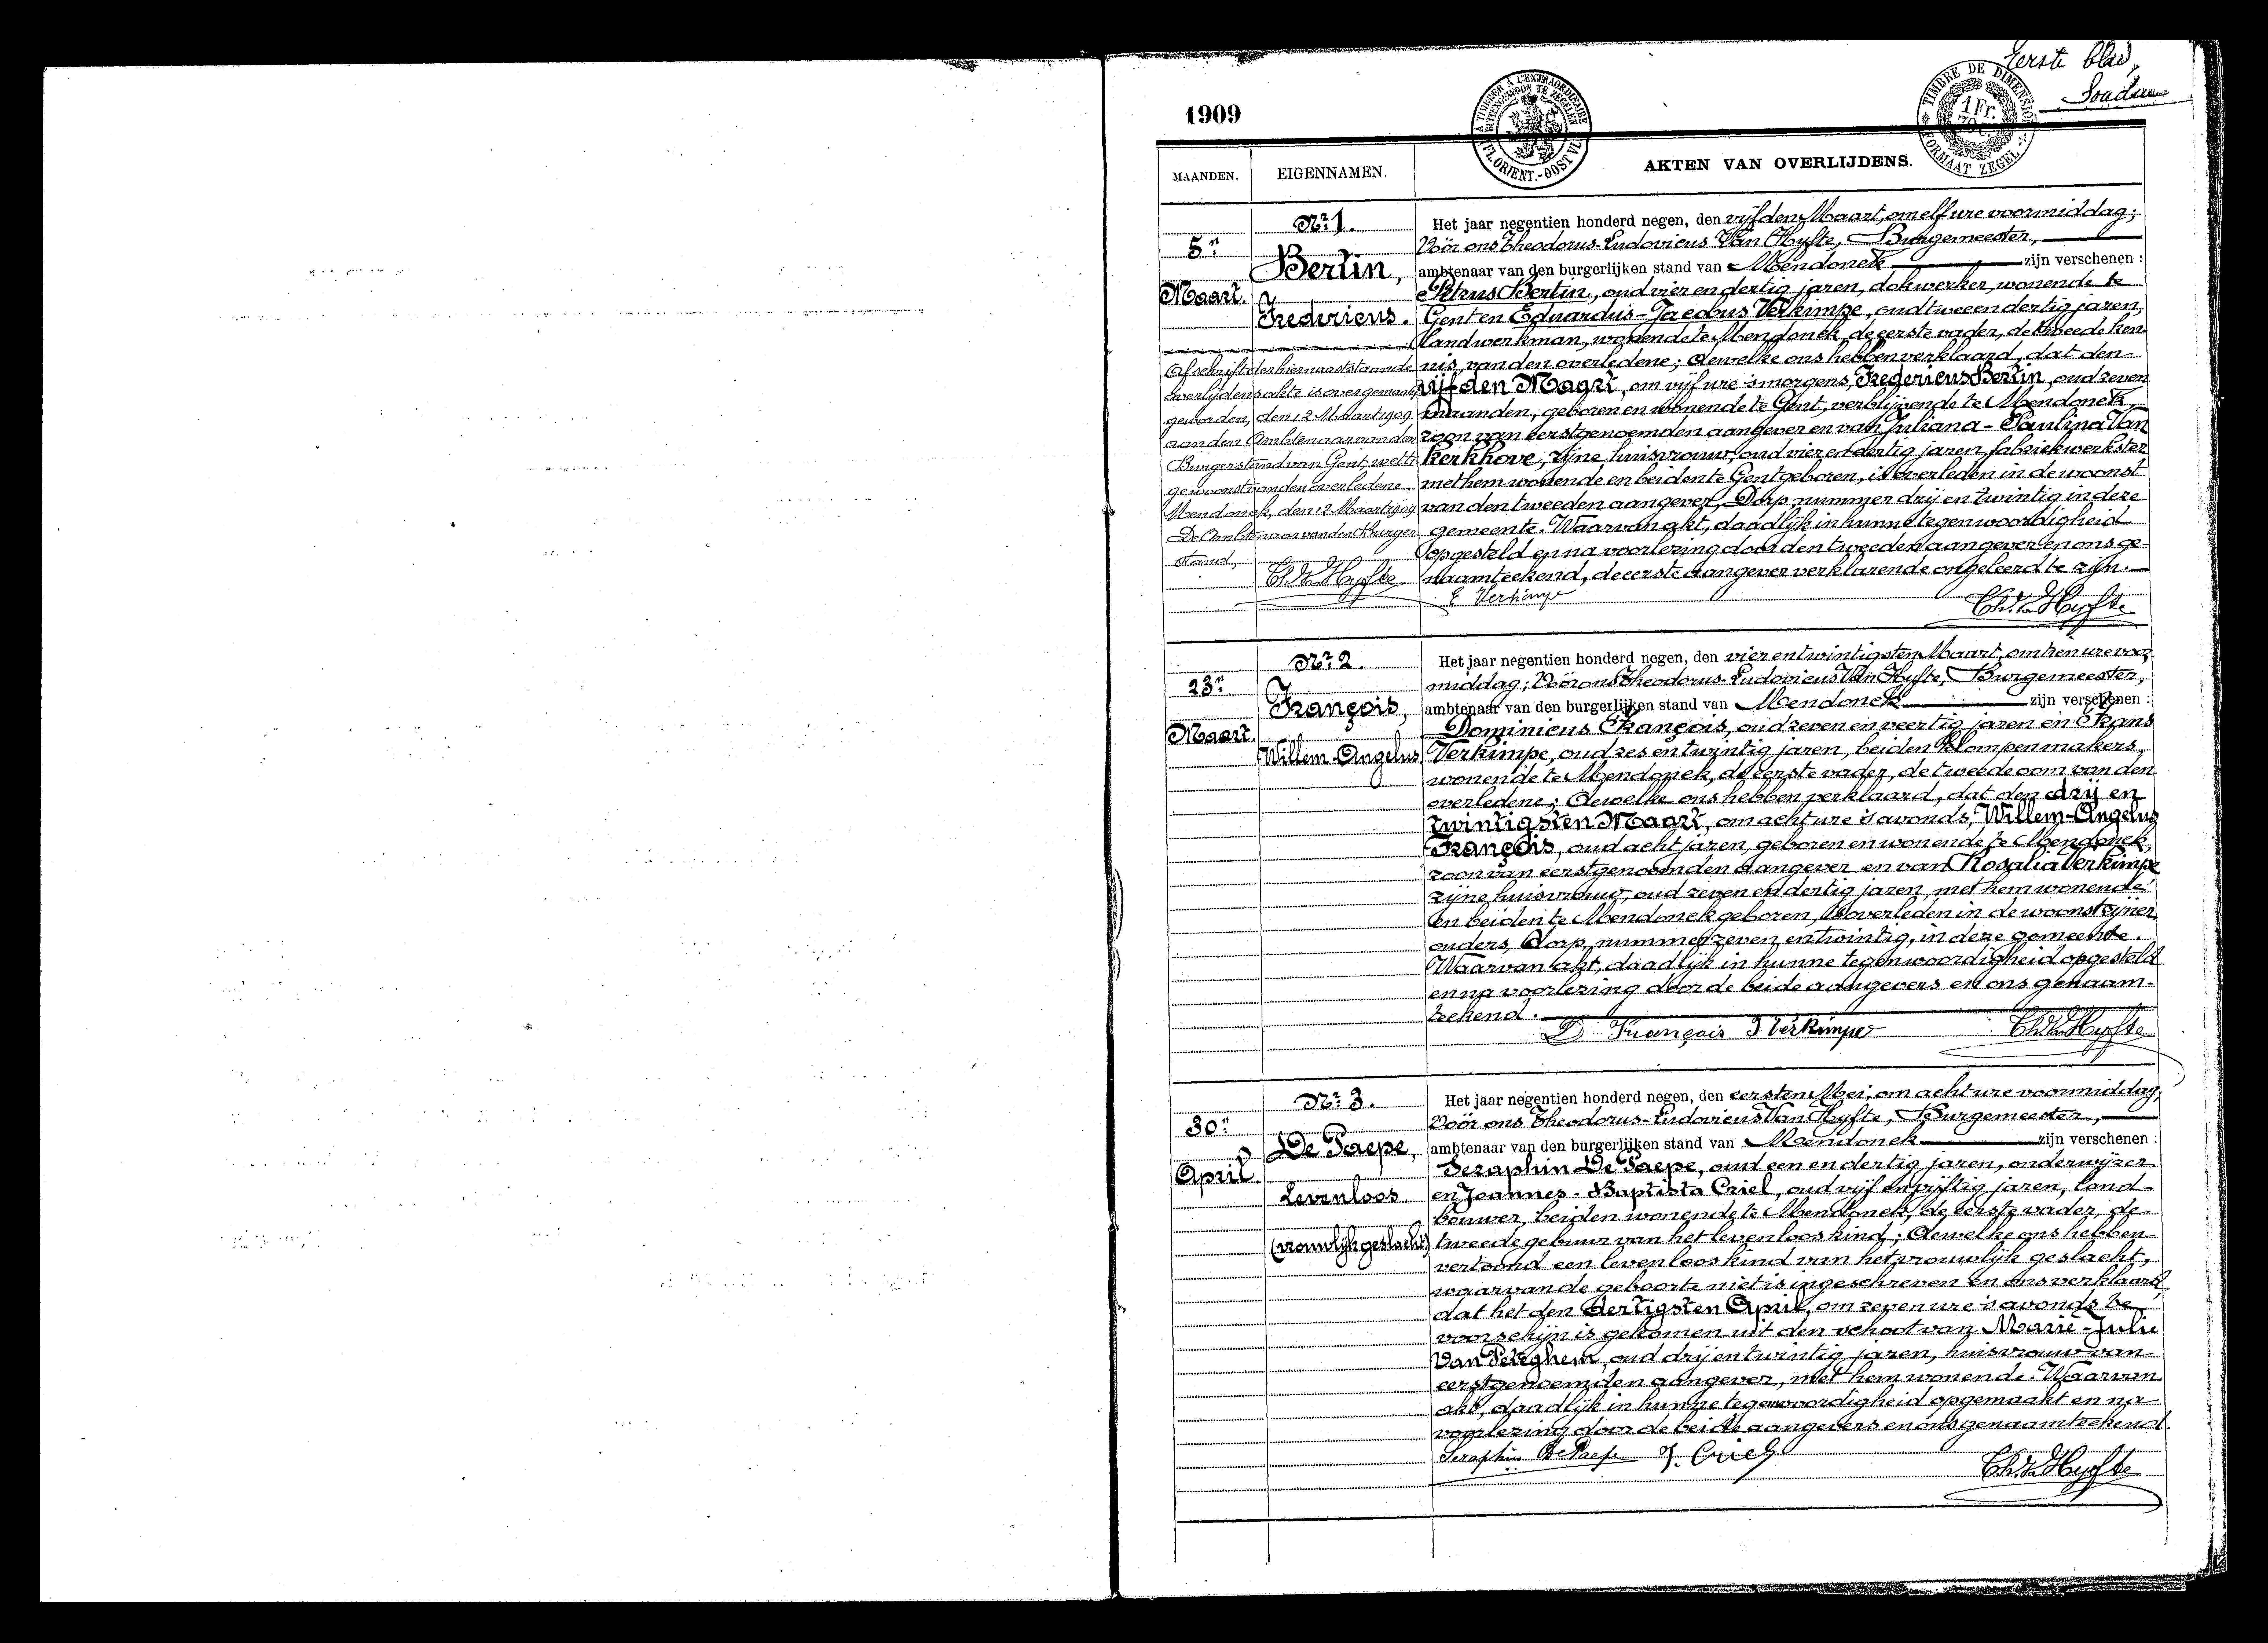 Eerste blad,
1909
A TIMBRER A L'EXTRAORDINAIRE
BUITENGEWOON TE ZEGELEN
FL. ORIENT.-OOST VL.
TIMBRE DE DIMENSION
1 Fr.
FORMAAT ZEGEL
MAANDEN.
EIGENNAMEN.
AKTEN VAN OVERLIJDENS.
5n
Maart.
Nr 1.
Bertin,
Fredericus.
Afschrift der hiernaaststaande
overlijdensakte is overgemaakt
geworden, den 12 Maart 1909
aan den Ambtenaar van den
Burgerstand van Gent, wetti-
ge woonst van den overledene.
Mendonck, den 12 Maart 1909
De Ambtenaar van den Burger
stand,
Th. Van Hyfte
Het jaar negentien honderd negen, den vijfden Maart, om elf ure voormiddag;
Vóór ons Theodorus-Ludovicus Van Hyfte, Burgemeester,
ambtenaar van den burgerlijken stand van Mendonck zijn verschenen :
Petrus Bertin, oud vier en dertig jaren, dokwerker, wonende te
Gent en Eduardus-Jacobus Verkimpe, oud twee en dertig jaren,
landwerkman, wonende te Mendonck, de eerste vader, de tweede ken-
nis, van den overledene; dewelke ons hebben verklaard, dat den
vijfden Maart, om vijf ure 's morgens, Fredericus Bertin, oud zeven
maanden, geboren en wonende te Gent, verblijvende te Mendonck,
zoon van eerstgenoemden aangever en van Juliana-Paulina Van
Kerkhove, zijne huisvrouw, oud vier en dertig jaren, fabriekwerkster
met hem wonende en beiden te Gent geboren, is overleden in de woonst
van den tweeden aangever, Dorp nummer drij en twintig in deze
gemeente. Waarvan akt, daadlijk in hunne tegenwoordigheid
opgesteld en na voorlezing door den tweeden aangever en ons ge-
naamteekend, de eerste aangever verklarende ongeleerd te zijn.
E Verkimpe
Th. Van Hyfte
23n
Maart.
Nr 2.
François,
Willem-Angelus
Het jaar negentien honderd negen, den vier en twintigsten Maart, om tien ure voor-
middag; Vóór ons Theodorus-Ludovicus Van Hyfte, Burgemeester,
ambtenaar van den burgerlijken stand van Mendonck zijn verschenen :
Dominicus François, oud zeven en veertig jaren en Frans
Verkimpe, oud zes en twintig jaren, beiden klompenmakers,
wonende te Mendonck, de eerste vader, de tweede oom van den
overledene; dewelke ons hebben verklaard, dat den drij en
twintigsten Maart, om acht ure 's avonds, Willem-Angelus
François, oud acht jaren, geboren en wonende te Mendonck,
zoon van eerstgenoemden aangever en van Rosalia Verkimpe
zijne huisvrouw, oud zeven en dertig jaren, met hem wonende
en beiden te Mendonck geboren, is overleden in de woonst zijner
ouders, Dorp, nummer zeven en twintig, in deze gemeente.
Waarvan akt, daadlijk in hunne tegenwoordigheid opgesteld
en na voorlezing door de beide aangevers en ons genaam-
teekend.
D François F Verkimpe
Th. Van Hyfte
30n
April
Nr 3.
De Paepe,
Levenloos
(vrouwlijk geslacht)
Het jaar negentien honderd negen, den eersten Mei, om acht ure voormiddag;
Vóór ons Theodorus-Ludovicus Van Hyfte, Burgemeester,
ambtenaar van den burgerlijken stand van Mendonck zijn verschenen :
Seraphin De Paepe, oud een en dertig jaren, onderwijzer
en Joannes-Baptista Criel, oud vijf en vijftig jaren, land-
bouwer, beiden wonende te Mendonck, de eerste vader, de
tweede gebuur van het levenloos kind; dewelke ons hebben
vertoond een levenloos kind van het vrouwlijk geslacht,
waarvan de geboorte niet is ingeschreven en ons verklaard,
dat het den dertigsten April, om zeven ure 's avonds te
voorschijn is gekomen uit den schoot van Marie-Julie
Van Peteghem, oud drij en twintig jaren, huisvrouw van
eerstgenoemden aangever, met hem wonende. Waarvan
akt, daadlijk in hunne tegenwoordigheid opgemaakt en na
voorlezing door de beide aangevers en ons genaamteekend.
Seraphin De Paepe J. Criel
Th. Van Hyfte